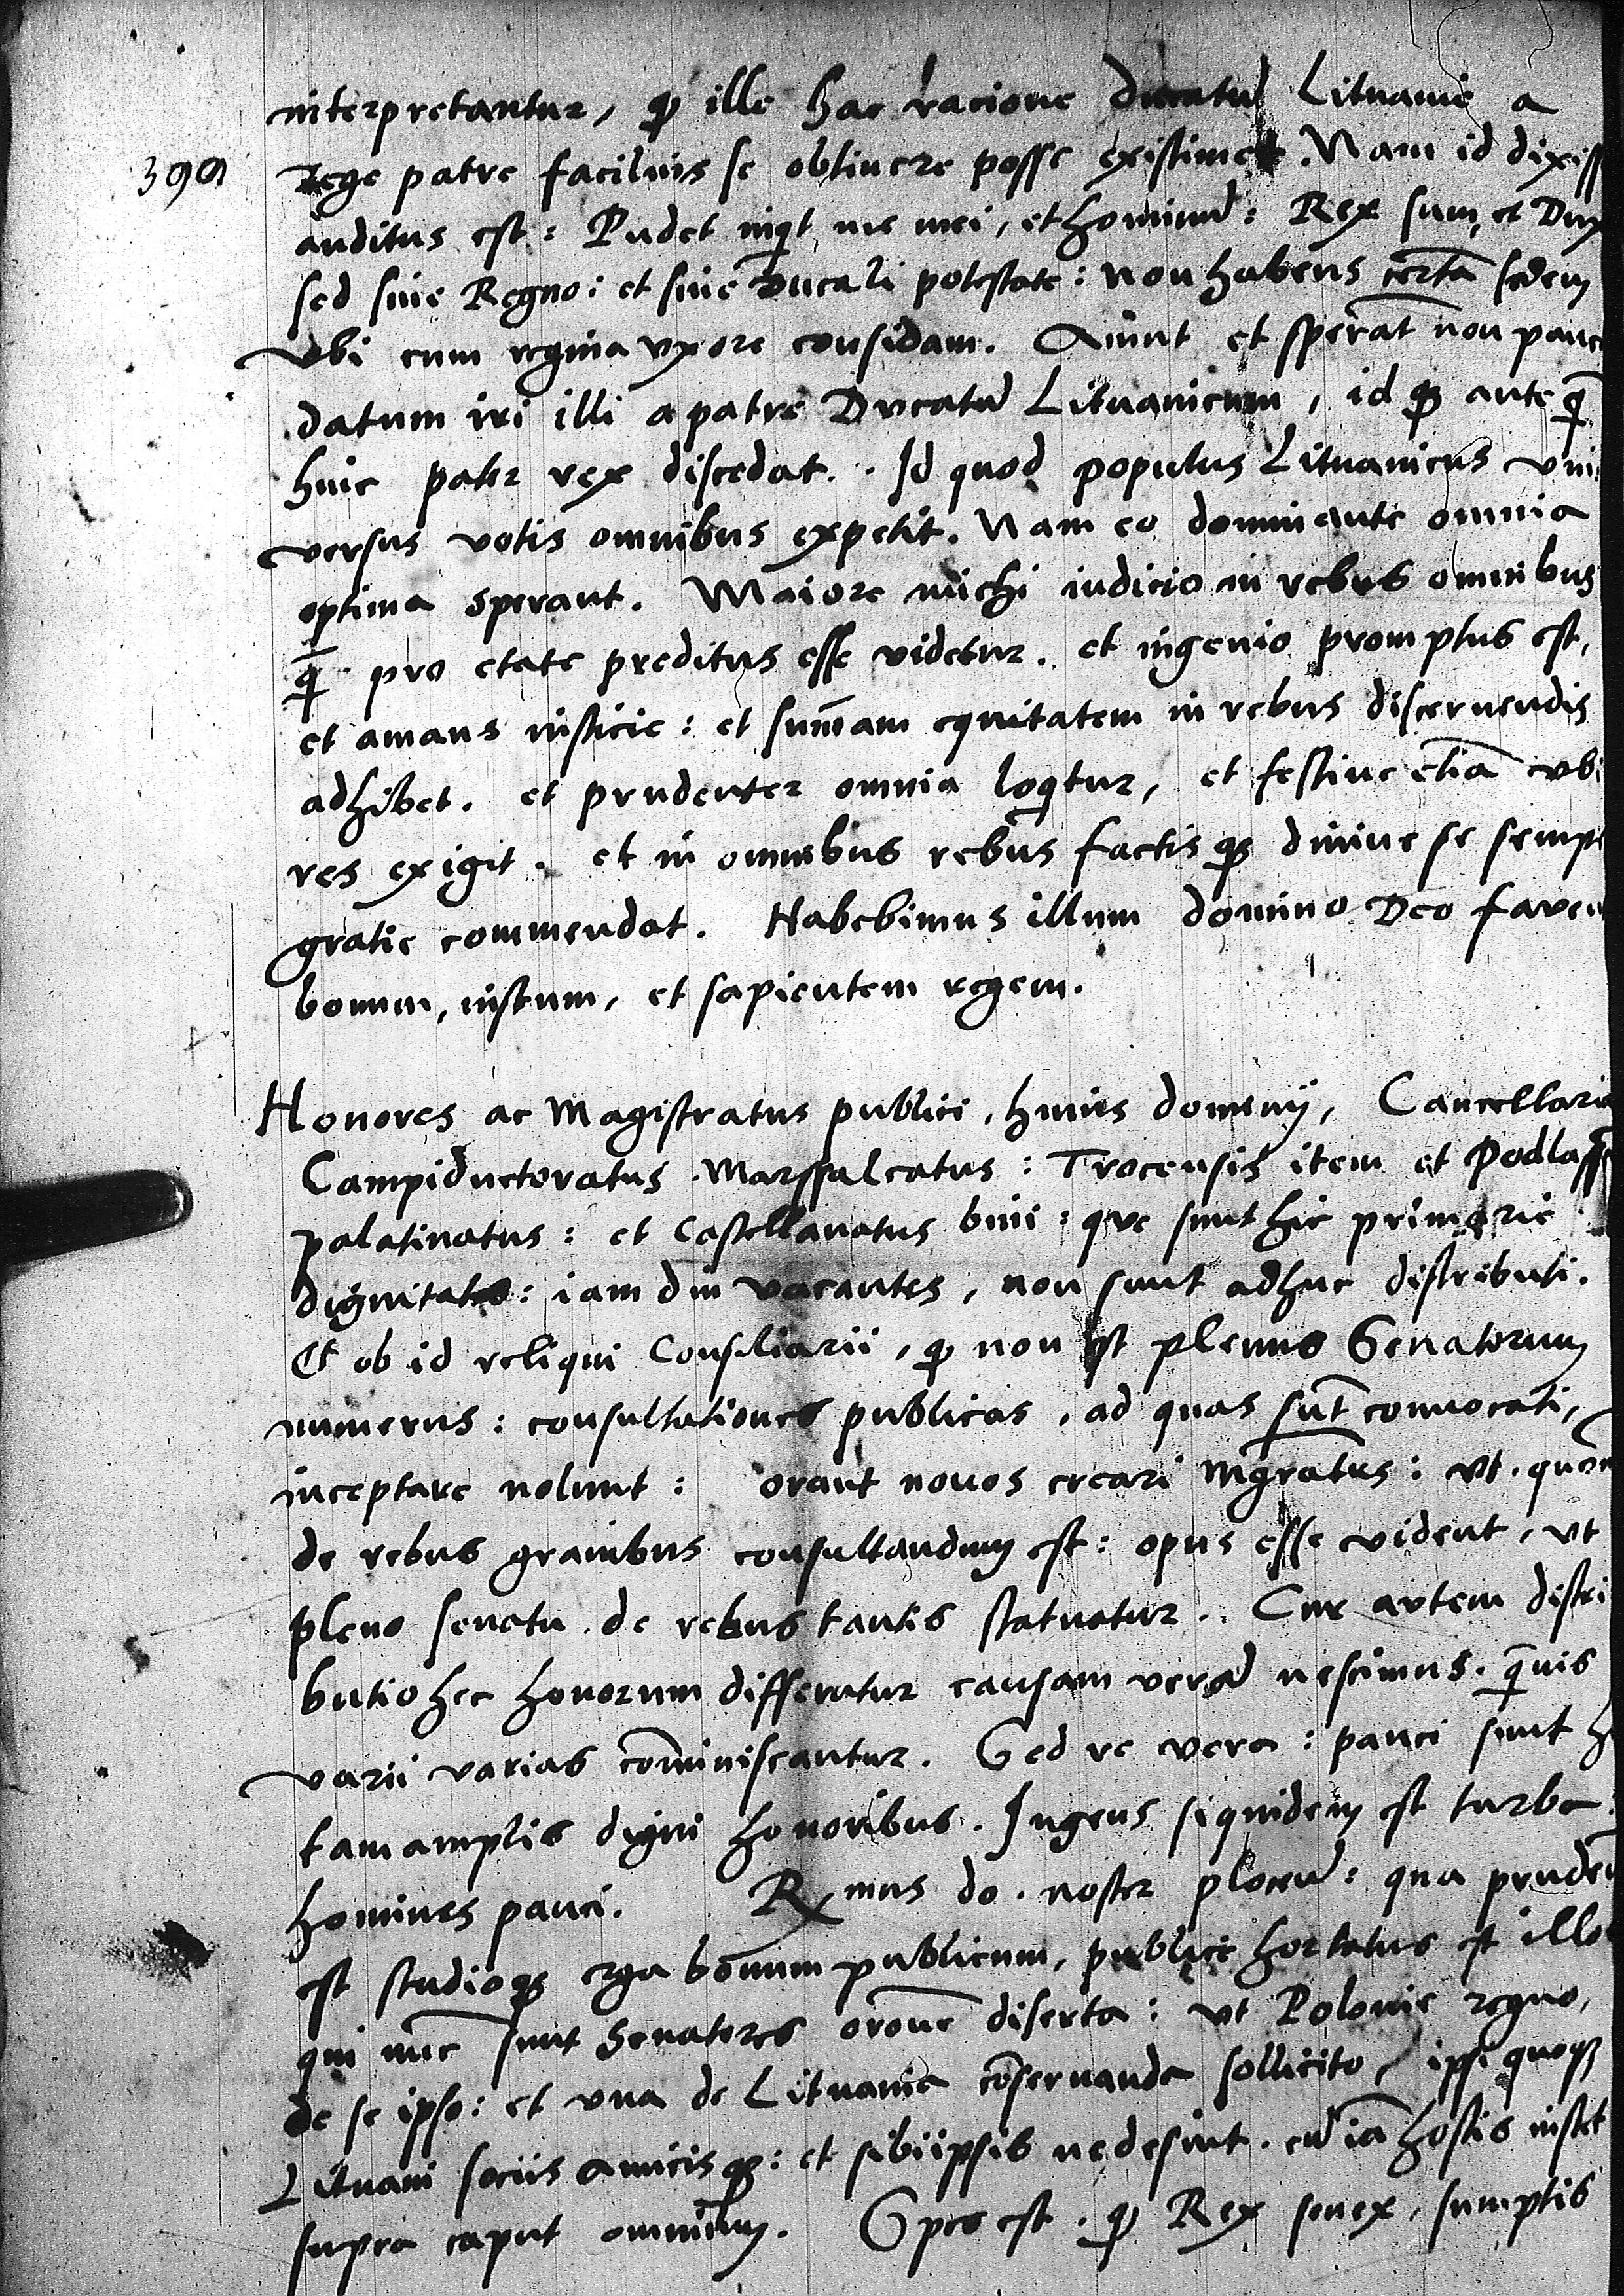 interpretantur, qꝫ ille hac racione ducatũ Lituanie a
399 Rege patre facilius se obtinere posse existimet. Nam id dixiss
auditus est: Pudet inqͥt me mei, et hominũ: Rex sum, et Dux
sed sine Regno: et sine Ducali potestate: non habens certã sedem
vbi cum regina vxore considam. Aiunt et sperãt non pauc
datum iri illi a patre Ducatũ Lituanicum, id qꝫ ante q̃
hinc pater rex discedat. Id quod populus Lituanicus vni
versus votis omnibus expetit. Nam eo dominante omnia
optima sperant. Maiore michi iudicio in rebus omnibus
q̃ pro etate preditus esse videtur. et ingenio promptus est,
et amans iusticie: et sum̃am equitatem in rebus discernendis
adhibet. et prudenter omnia loqͥtur, et festiue etiã vbi
res exigit. et in omnibus rebus factis qꝫ diuine se sempe
gratie commendat. Habebimus illum domino Deo faven
bonum, iustum, et sapientem regem.
Honores ac Magistratus publici, huius dominij, Cancellari
Campiductoratus. Marssalcatus: Trocensis item et Podlass
palatinatus: et Castellanatus bini: que sunt hic primarie
dignitates: iam diu vacantes, non sunt adhuc distributi.
Et ob id reliqui Consiliarii, qꝫ non est plenus Senatorum
numerus: consultationes publicas, ad quas sũt conuocati,
inceptare nolunt: orant nouos creari mg̃ratus: vt. quõm
de rebus grauibus consultandum est: opus esse vident, vt
pleno senatu. de rebus tantis statuatur.. Cur autem distri
butio hec honorum differatur causam verã nescimus. q̃uis
varii varias com̃iniscantur. Sed re vera: pauci sunt h
tam amplis digni honoribus. Ingens siquidem est turba:
homines pauci. Rmus do. noster plocen̄: qua pruden
est studioqꝫ erga bonum publicum, publice hortatus est illos
qui nunc sunt Senatores orõne diserta: vt Polonie regno,
de se ipso: et vna de Lituania cõseruanda sollicito, ipsi quoqꝫ
Lituani sociis amicis qꝫ: et sibiipsis ne desint. cũ iã hostis instet
supra caput omnium. Spes est. qꝫ Rex senex, sumptis